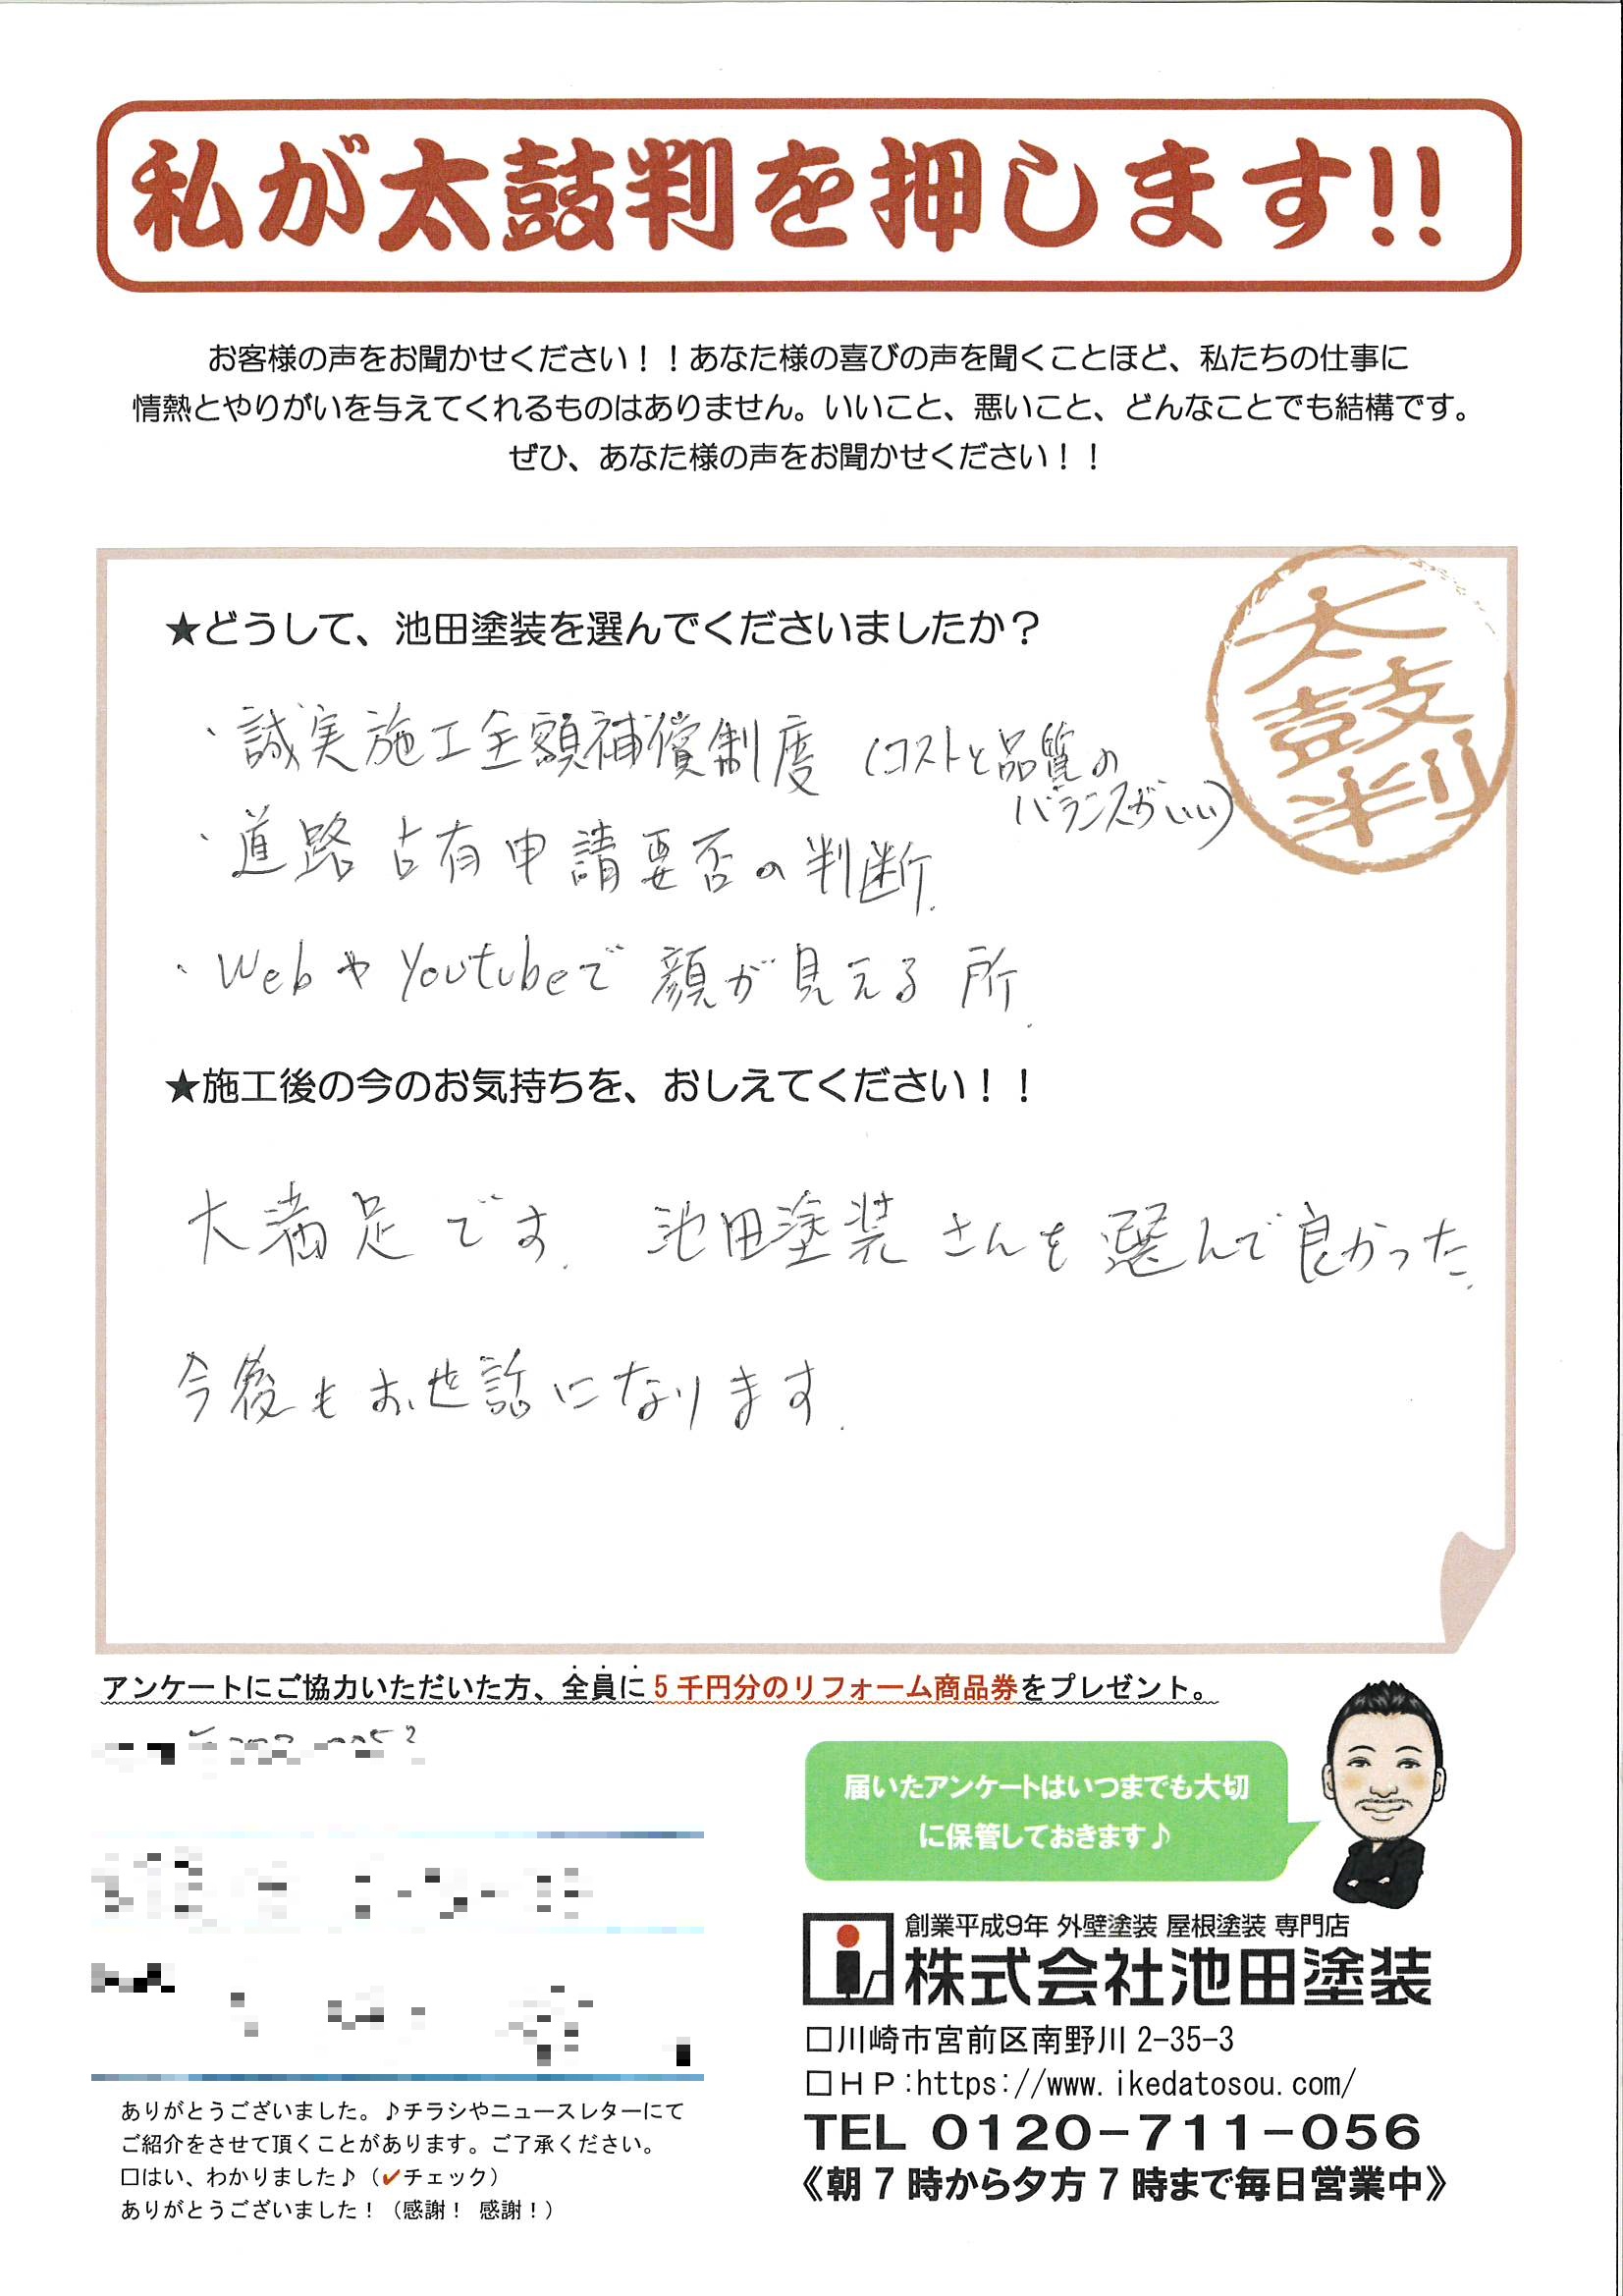 私が太鼓判を押します!!
お客様の声をお聞かせください！！あなた様の喜びの声を聞くことほど、私たちの仕事に
情熱とやりがいを与えてくれるものはありません。いいこと、悪いこと、どんなことでも結構です。
ぜひ、あなた様の声をお聞かせください！！
太鼓判
★どうして、池田塗装を選んでくださいましたか？
・誠実施工全額補償制度（コストと品質の
バランスがいい）
・道路占有申請要否の判断.
・WebやYoutubeで顔が見える所.
★施工後の今のお気持ちを、おしえてください！！
大満足です. 池田塗装さんを選んで良かった.
今後もお世話になります.
アンケートにご協力いただいた方、全員に5千円分のリフォーム商品券をプレゼント。
届いたアンケートはいつまでも大切
に保管しておきます♪
創業平成9年 外壁塗装 屋根塗装 専門店
株式会社池田塗装
□川崎市宮前区南野川2-35-3
□ＨＰ:https://www.ikedatosou.com/
TEL 0120-711-056
《朝7時から夕方7時まで毎日営業中》
ありがとうございました。♪チラシやニュースレターにて
ご紹介をさせて頂くことがあります。ご了承ください。
□はい、わかりました♪（✔チェック）
ありがとうございました！（感謝！ 感謝！）